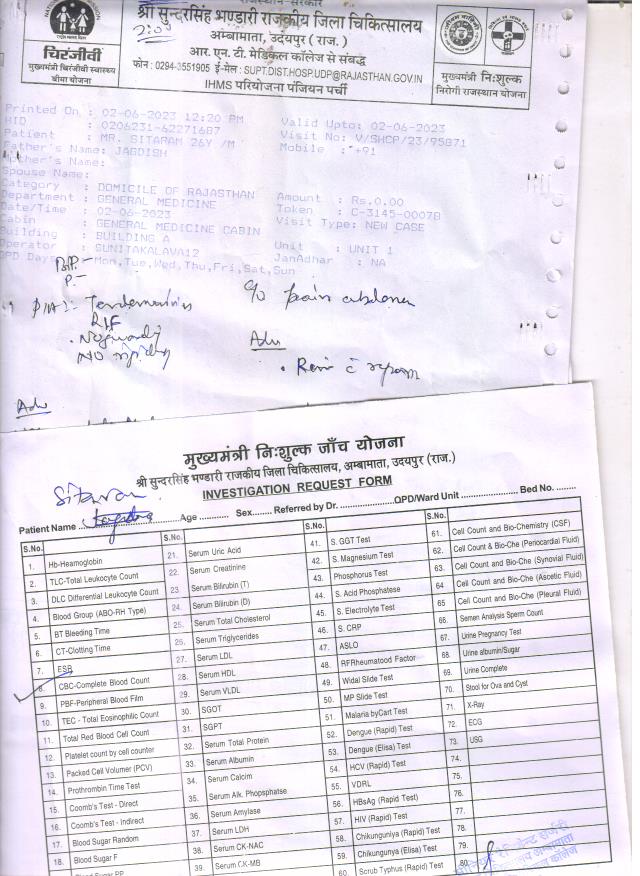 श्री सुन्दरसिंह भण्डारी राजकीय जिला चिकित्सालय
अम्बामाता, उदयपुर ( राज. )
आर. एन. टी. मेडिकल कॉलेज से संबद्ध
फोन : 0294-3551905 ई-मेल : SUPT.DIST.HOSP.UDP@RAJASTHAN.GOV.IN
IHMS परियोजना पंजियन पर्ची
चिरंजीवी
मुख्यमंत्री चिरंजीवी स्वास्थ्य
बीमा योजना
मुख्यमंत्री निःशुल्क
निरोगी राजस्थान योजना
Printed On : 02-06-2023 12:20 PM Valid Upto: 02-06-2023
HID : 0206231-62271687 Visit No: V/SHCP/23/95871
Patient : MR. SITARAM 26Y /M Mobile : +91
Father's Name: JAGDISH
Mother's Name:
Spouse Name:
Category : DOMICILE OF RAJASTHAN Amount : Rs.0.00
Department : GENERAL MEDICINE Token : C-3145-0007B
Date/Time : 02-06-2023 Visit Type: NEW CASE
Cabin : GENERAL MEDICINE CABIN
Building : BUILDING A Unit : UNIT 1
Operator : SUNITAKALAVA12 JanAdhar : NA
OPD Days : Mon,Tue,Wed,Thu,Fri,Sat,Sun
B.P. -
P. -
P/A : Tenderness in
RIF
c/o pain abdomen
Adv
Adv
मुख्यमंत्री निःशुल्क जाँच योजना
श्री सुन्दरसिंह भण्डारी राजकीय जिला चिकित्सालय, अम्बामाता, उदयपुर (राज.)
INVESTIGATION REQUEST FORM
Sitaram
Patient Name ............ Age ............ Sex........ Referred by Dr. .................... OPD/Ward Unit ...................... Bed No. .........
S.No. S.No. S.No. S.No.
1. Hb-Heamoglobin 21. Serum Uric Acid 41. S. GGT Test 61. Cell Count and Bio-Chemistry (CSF)
2. TLC-Total Leukocyte Count 22. Serum Creatinine 42. S. Magnesium Test 62. Cell Count & Bio-Che (Periocardial Fluid)
3. DLC Differential Leukocyte Count 23 Serum Bilirubin (T) 43. Phosphorus Test 63. Cell Count and Bio-Che (Synovial Fluid)
4. Blood Group (ABO-RH Type) 24. Serum Bilirubin (D) 44. S. Acid Phosphatese 64 Cell Count and Bio-Che (Ascetic Fluid)
5. BT Bleeding Time 25. Serum Total Cholesterol 45. S. Electrolyte Test 65 Cell Count and Bio-Che (Pleural Fluid)
6. CT-Clotting Time 26. Serum Triglycerides 46. S. CRP 66. Semen Analysis Sperm Count
7. ESR 27. Serum LDL 47. ASLO 67. Urine Pregnancy Test
8. CBC-Complete Blood Count 28. Serum HDL 48. RFRheumatood Factor 68. Urine albumin/Sugar
9. PBF-Peripheral Blood Film 29. Serum VLDL 49. Widal Slide Test 69. Urine Complete
10. TEC - Total Eosinophilic Count 30. SGOT 50. MP Slide Test 70. Stool for Ova and Cyst
11. Total Red Blood Cell Count 31. SGPT 51. Malaria byCart Test 71. X-Ray
12. Platelet count by cell counter 32. Serum Total Protein 52. Dengue (Rapid) Test 72. ECG
13. Packed Cell Volumer (PCV) 33. Serum Albumin 53. Dengue (Elisa) Test 73. USG
14. Prothrombin Time Test 34. Serum Calcim 54. HCV (Rapid) Test 74.
15. Coomb's Test - Direct 35. Serum Alk. Phopsphatse 55. VDRL 75.
16. Coomb's Test - Indirect 36. Serum Amylase 56. HBsAg (Rapid Test) 76.
17. Blood Sugar Random 37. Serum LDH 57. HIV (Rapid) Test 77.
18. Blood Sugar F 38. Serum CK-NAC 58. Chikunguniya (Rapid) Test 78.
39. Serum CK-MB 59. Chikungunya (Elisa) Test 79.
60. Scrub Typhus (Rapid) Test 80.